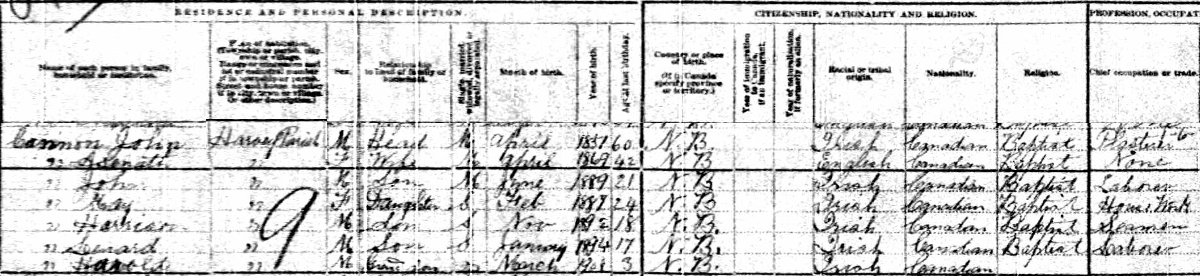 RESIDENCE AND PERSONAL DESCRIPTION. CITIZENSHIP, NATIONALITY AND RELIGION. PROFESSION, OCCUPAT
Name of each person in family, household or institution.
Place of habitation.
Sex.
Relationship to head of family or household.
Month of birth.
Year of birth.
Age at last birthday.
Country or place of birth.
(If in Canada specify province or territory.)
Year of immigration to Canada if an immigrant.
Year of naturalization, if formerly an alien.
Racial or tribal origin.
Nationality.
Religion.
Chief occupation or trade
Cannon John Harvey Parish M Head M April 1851 60 N. B. Irish Canadian Baptist
" " F Wife M April 1869 42 N. B English Canadian Baptist None
" John " M Son M June 1889 21 N. B Irish Canadian Baptist Laborer
" May " F Daughter S Feb 1887 24 N. B. Irish Canadian Baptist House Work
" Harrison " M Son S Nov 1892 18 N. B. Irish Canadian Baptist
" " M Son S January 1894 17 N. B. Irish Canadian Baptist Laborer
" Harold " M Grandson March 3 N. B. Irish Canadian
9